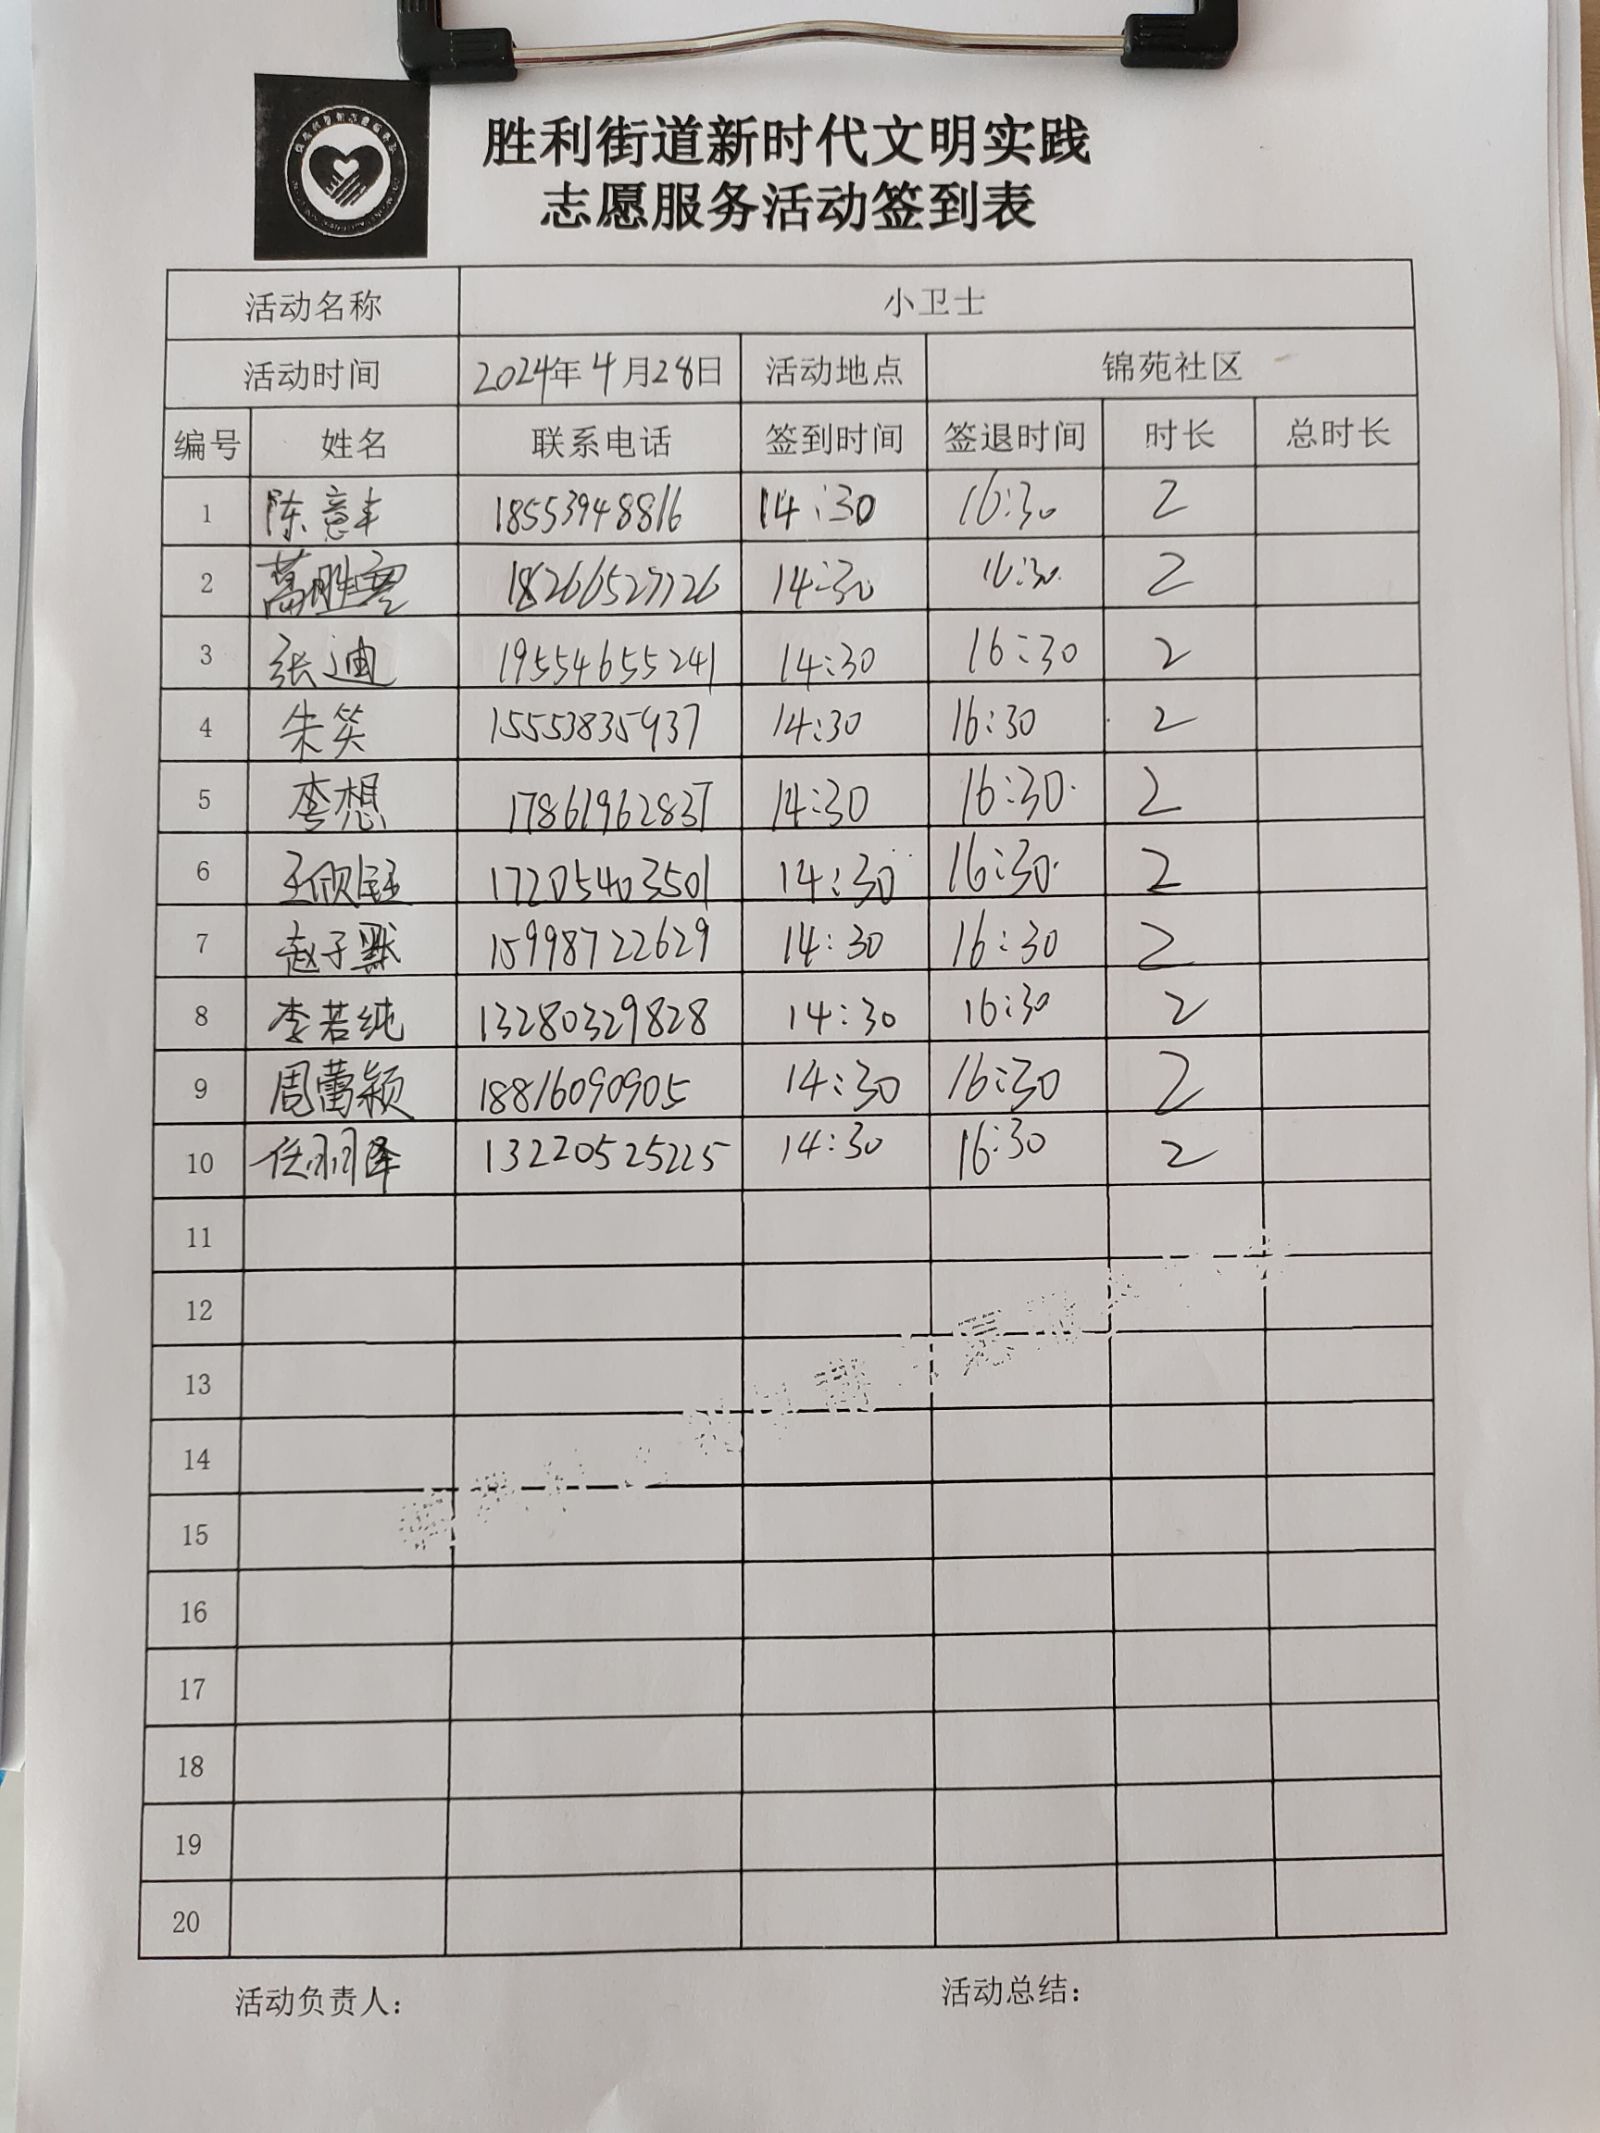 胜利街道新时代文明实践
志愿服务活动签到表
活动名称 小卫士
活动时间 2024年4月28日 活动地点 锦苑社区
编号 姓名 联系电话 签到时间 签退时间 时长 总时长
1 陈意丰 18553948816 14:30 16:30 2
2 18266527726 14:30 16:30 2
3 张迪 19554655241 14:30 16:30 2
4 朱笑 15553835937 14:30 16:30 2
5 李想 17861962837 14:30 16:30 2
6 17205403501 14:30 16:30 2
7 赵子默 15998722629 14:30 16:30 2
8 李若纯 13280329828 14:30 16:30 2
9 周蕾颖 18816090905 14:30 16:30 2
10 任羽泽 13220525225 14:30 16:30 2
11
12
13
14
15
16
17
18
19
20
活动负责人： 活动总结：